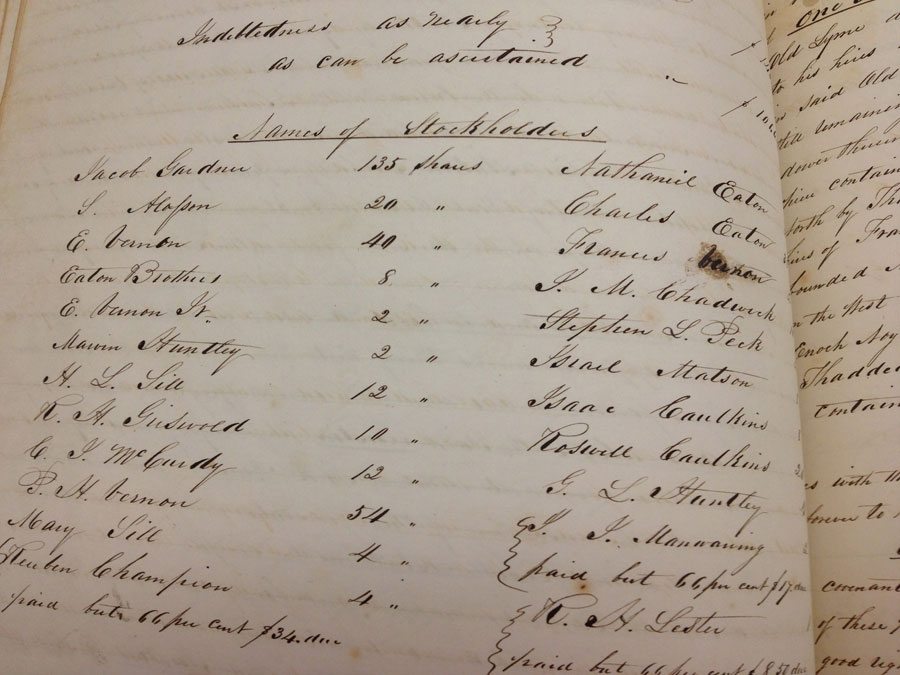 Indebtedness as nearly
as can be ascertained "
Names of Stockholders
Jacob Gardner 135 shares
20 "
E. Vernon 40 "
Eaton Brothers 8 "
E. Vernon Jr. 2 "
Marvin Huntley 2 "
H. L. Sill 12 "
R. H. Griswold 10 "
C. J. McCurdy 12 "
P. H. Vernon 54 "
Mary Sill 4 "
Reuben Champion 4 "
paid but 66 per cent $34. due
Nathaniel Eaton
Charles Eaton
Francis Vernon
J. M. Chadwick
Stephen L. Peck
Israel Matson
Isaac Caulkins
Roswell Caulkins
G. L. Huntley
J. J. Manwaring
paid but 66 per cent $17. due
R. H. Lester
paid but 66 per cent $8.50 due
one
Old Lyme
to his heirs
said Old
till remaining
dower
contain
forth by
of
bounded
on the West
Enoch Noy
Thadde
contain
with
forever to
covenant
of these
good